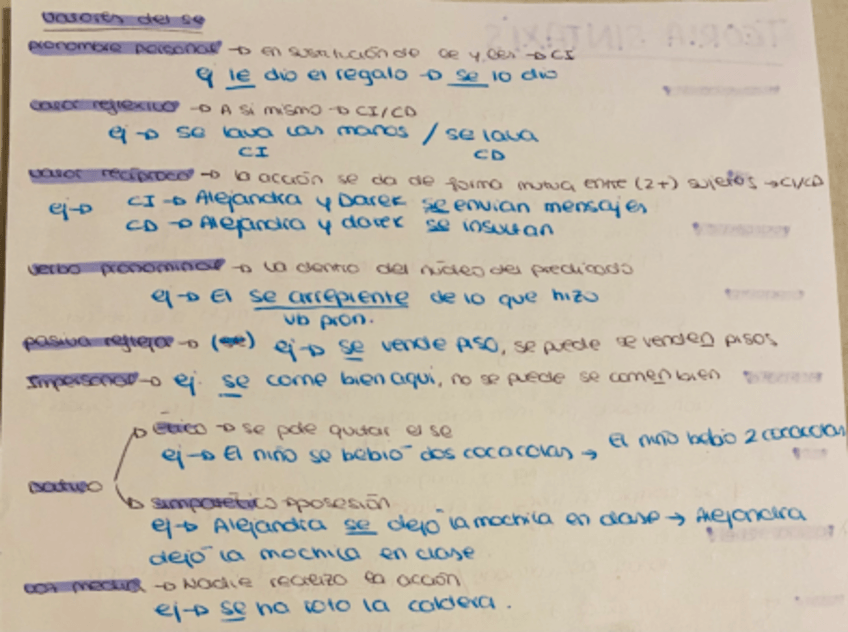 valores del se
pronombre personal → en sustitución de le y les → CI
ej le dio el regalo → se lo dio
valor reflexivo → A si mismo → CI/CD
ej → se lava las manos / se lava
CI CD
valor recíproco → la acción se da de forma mutua entre (2+) sujetos → CI/CD
ej → CI → Alejandra y Darek se envian mensajes
CD → Alejandra y darek se insultan
verbo pronominal → va dentro del núcleo del predicado
ej → El se arrepiente de lo que hizo
vb pron.
pasiva refleja → (se) ej → se vende piso, se puede se venden pisos
Impersonal → ej. se come bien aqui, no se puede se comen bien
dativo
ético → se pde quitar el se
ej → El niño se bebió dos cocacolas → El niño bebio 2 cocacolas
simpatético → posesión
ej → Alejandra se dejó la mochila en clase → Alejandra
dejó la mochila en clase
voz media → Nadie realizo la acción
ej → se ha roto la caldera.